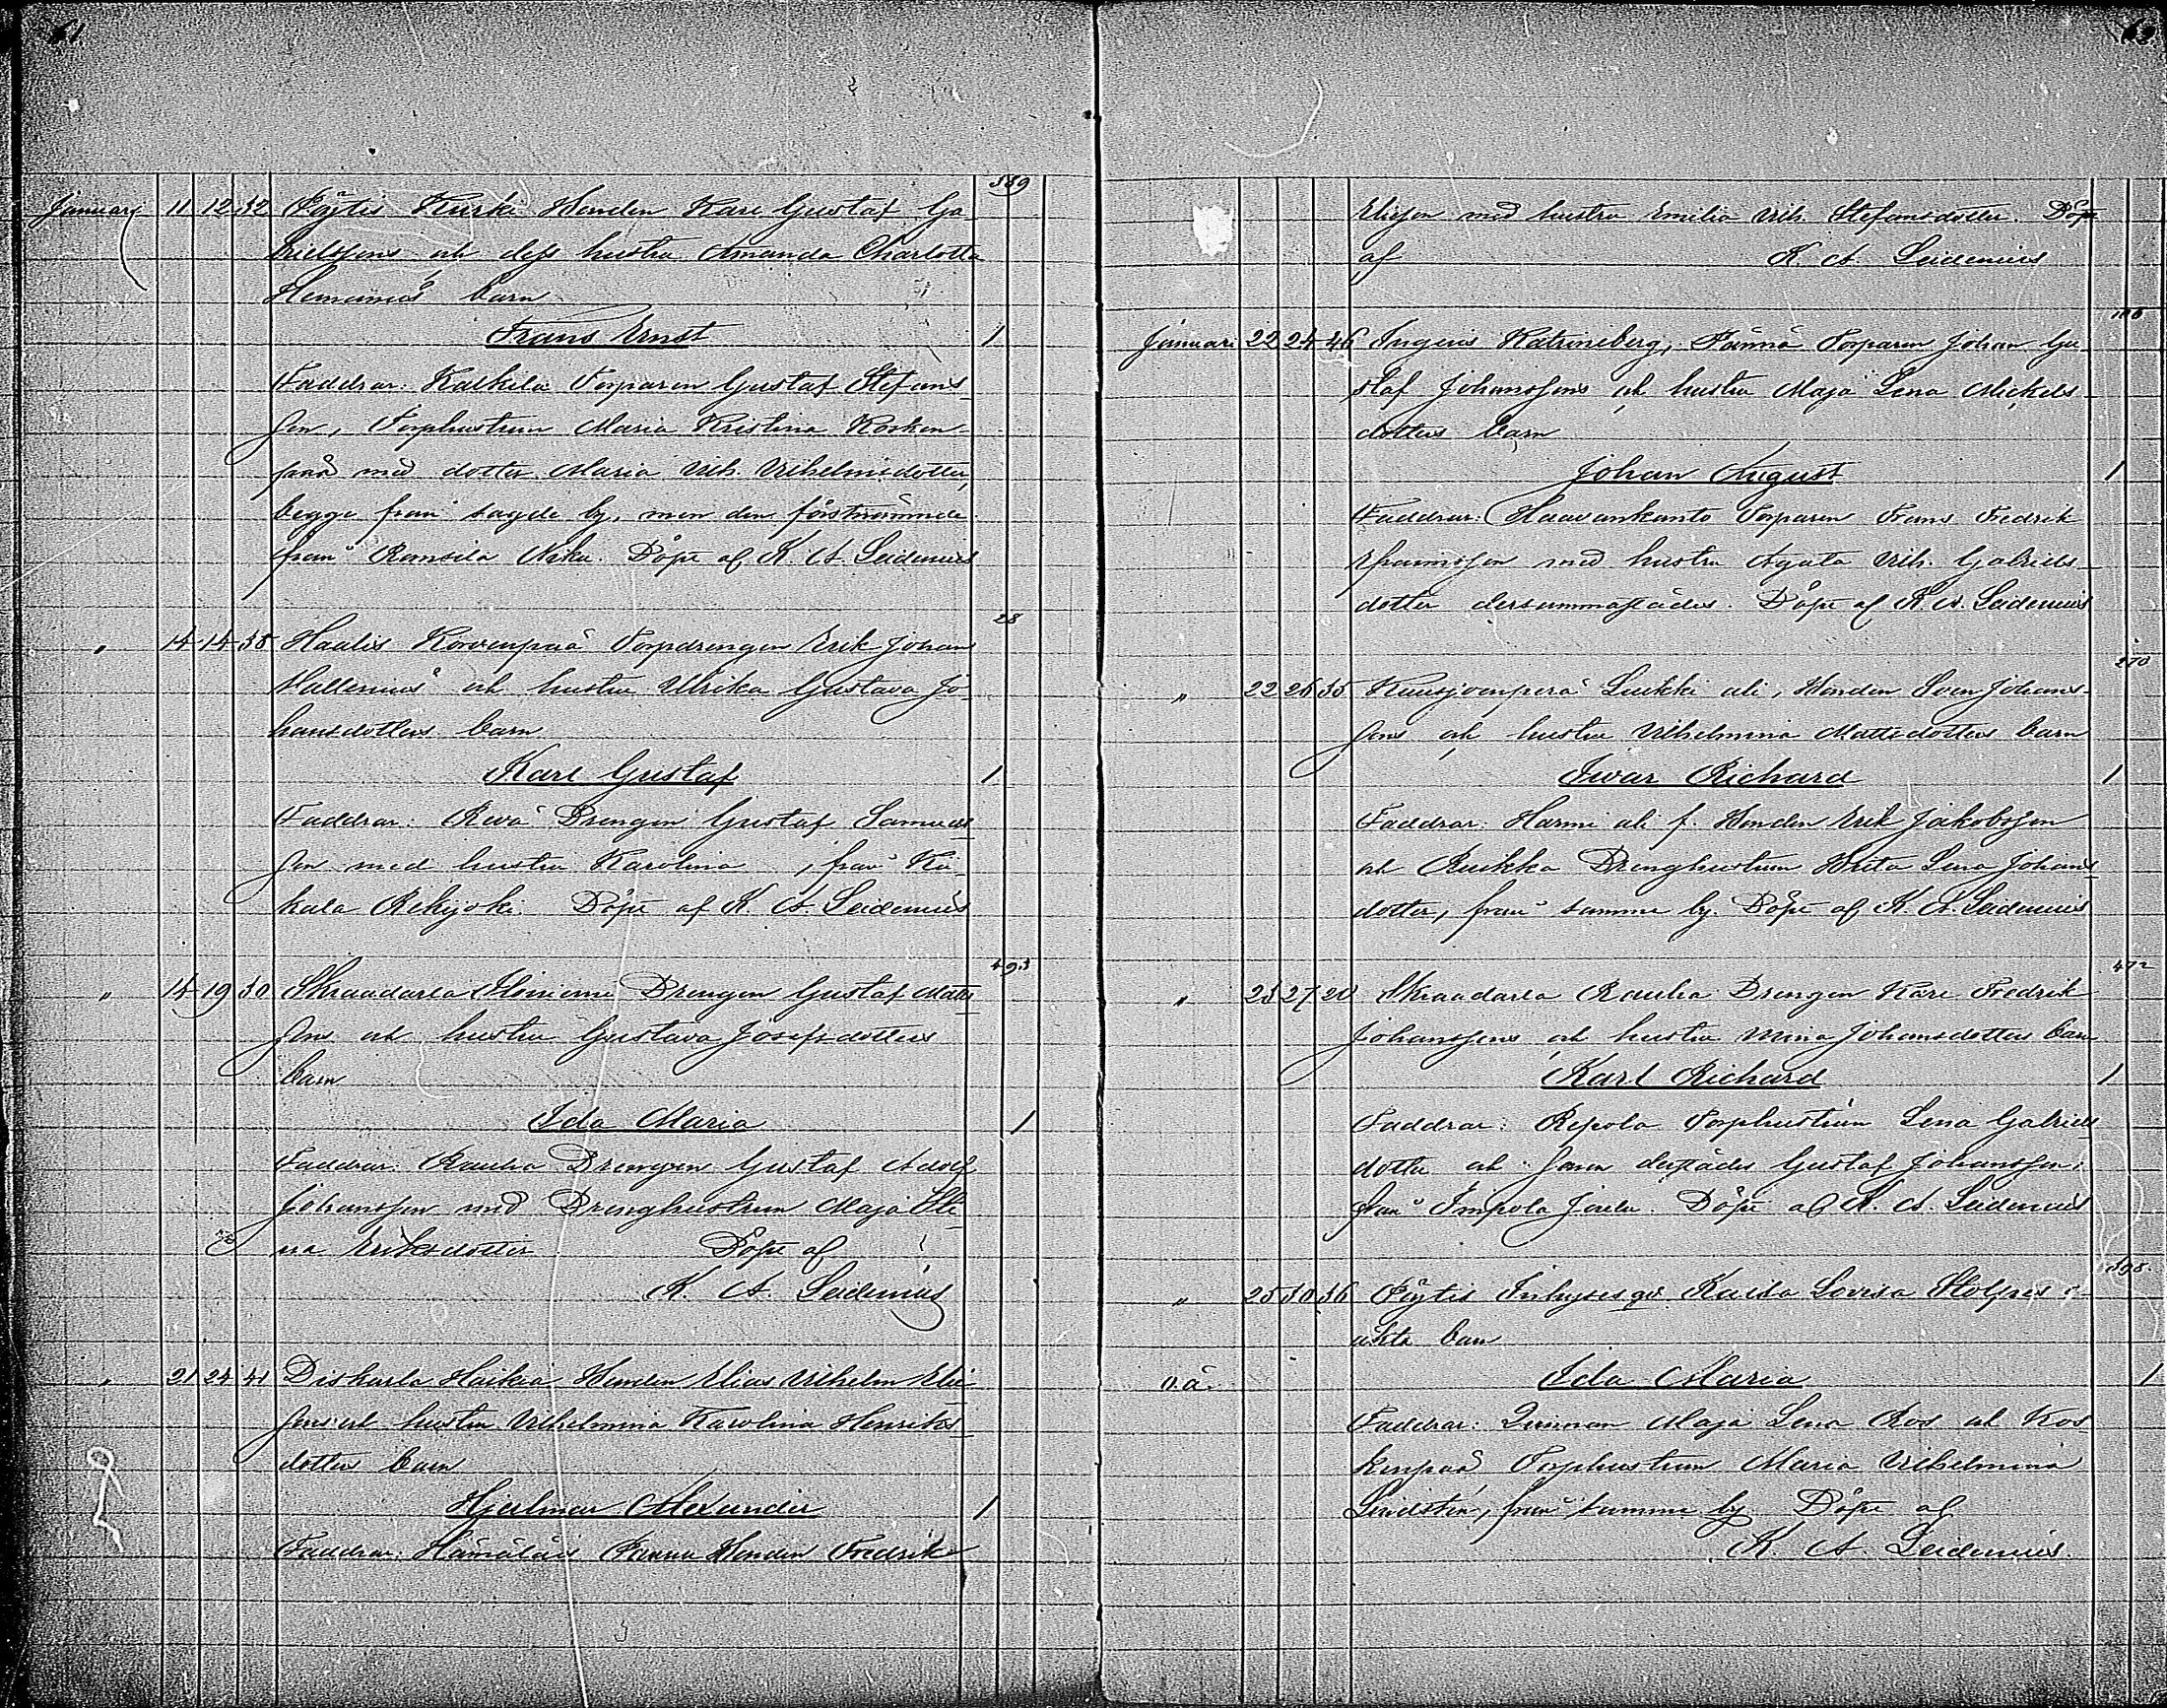 61.
589
Januari 11 12 32 Pöytis Kurki Bonden Karl Gustaf Ga-
brielssons och dess hustru Amanda Charlotta
Hemmings barn
Frans Ernst 1
Faddrar: Kalkila Torparen Gustaf Stefans-
son, Torphustrun Maria Kristina Kosken-
pää med dotter Maria Vilh. Vilhelmsdotter,
begge från sagde by, men den förstnämnde
från Remsila Naku. Döpt af K. A. Leidenius
28
" 14 14 38 Haalis Korvenpää Torpdrengen Erik Johan
Hallenius och hustru Ulrika Gustava Jo-
hansdotters barn
Karl Gustaf 1
Faddrar: Revä Drengen Gustaf Samuels-
son med hustru Karolina, från Ki-
kala Rekijoki. Döpt af K. A. Leidenius
493
" 14 19 30 Skraadarla Drengen Gustaf Matts-
sons och hustru Gustava Josefsdotters
barn
Ida Maria 1
Faddrar: Rauha Drengen Gustaf Adolf
Johansson med Drenghustrun Maja Ste-
na Eriksdotter Döpt af
K. A. Leidenius
" 21 24 41 Diskarla Heikka Bonden Elias Vilhelm Elie-
sons och hustru Vilhelmina Karolina Henriks-
dotters barn
Hjalmar Alexander 1
Faddrar: Hämäläis Bonden Fredrik
Eliesson med hustru Emilia Vilh. Stefansdotter. Döpt
af K. A. Leidenius
Januari 22 24 46 Ingeris Katrineberg, Torparen Johan Gu-
staf Johanssons och hustru Maja Lena Mickels-
dotters barn
Johan August 1
Faddrar: Haavankanto Torparen Frans Fredrik
med hustru Agata Vilh. Gabriels-
dotter dersammastädes. Döpt af K. A. Leidenius
270
" 22 26 35 Kuusjoenperä Luikki ali, Bonden Sven Johans-
sons och hustru Vilhelmina Mattsdotters barn
Ivar Richard 1
Faddrar: Harmi ali f. Bonden Erik Jakobsson
och Ruikka Drenghustrun Brita Lena Johans-
dotter, från samma by. Döpt af K. A. Leidenius
472
" 25 27 20 Skraadarla Rauha Drengen Karl Fredrik
Johanssons och hustru Mina Johansdotters barn
Karl Richard 1
Faddrar: Repola Torphustrun Lena Gabriels-
dotter och sonen derstädes Gustaf Johansson,
från Impola Joula. Döpt af K. A. Leidenius
598
" 25 30 36 Pöytis Inhyses qv. Karlsa Lovisa Stolpes o-
äkta barn
o.ä. Ida Maria 1
Faddrar: Qvinnan Maja Lena Ros och Kos-
kenpää Torphustrun Maria Vilhelmina
Lindstén, från samma by. Döpt af
K. A. Leidenius.